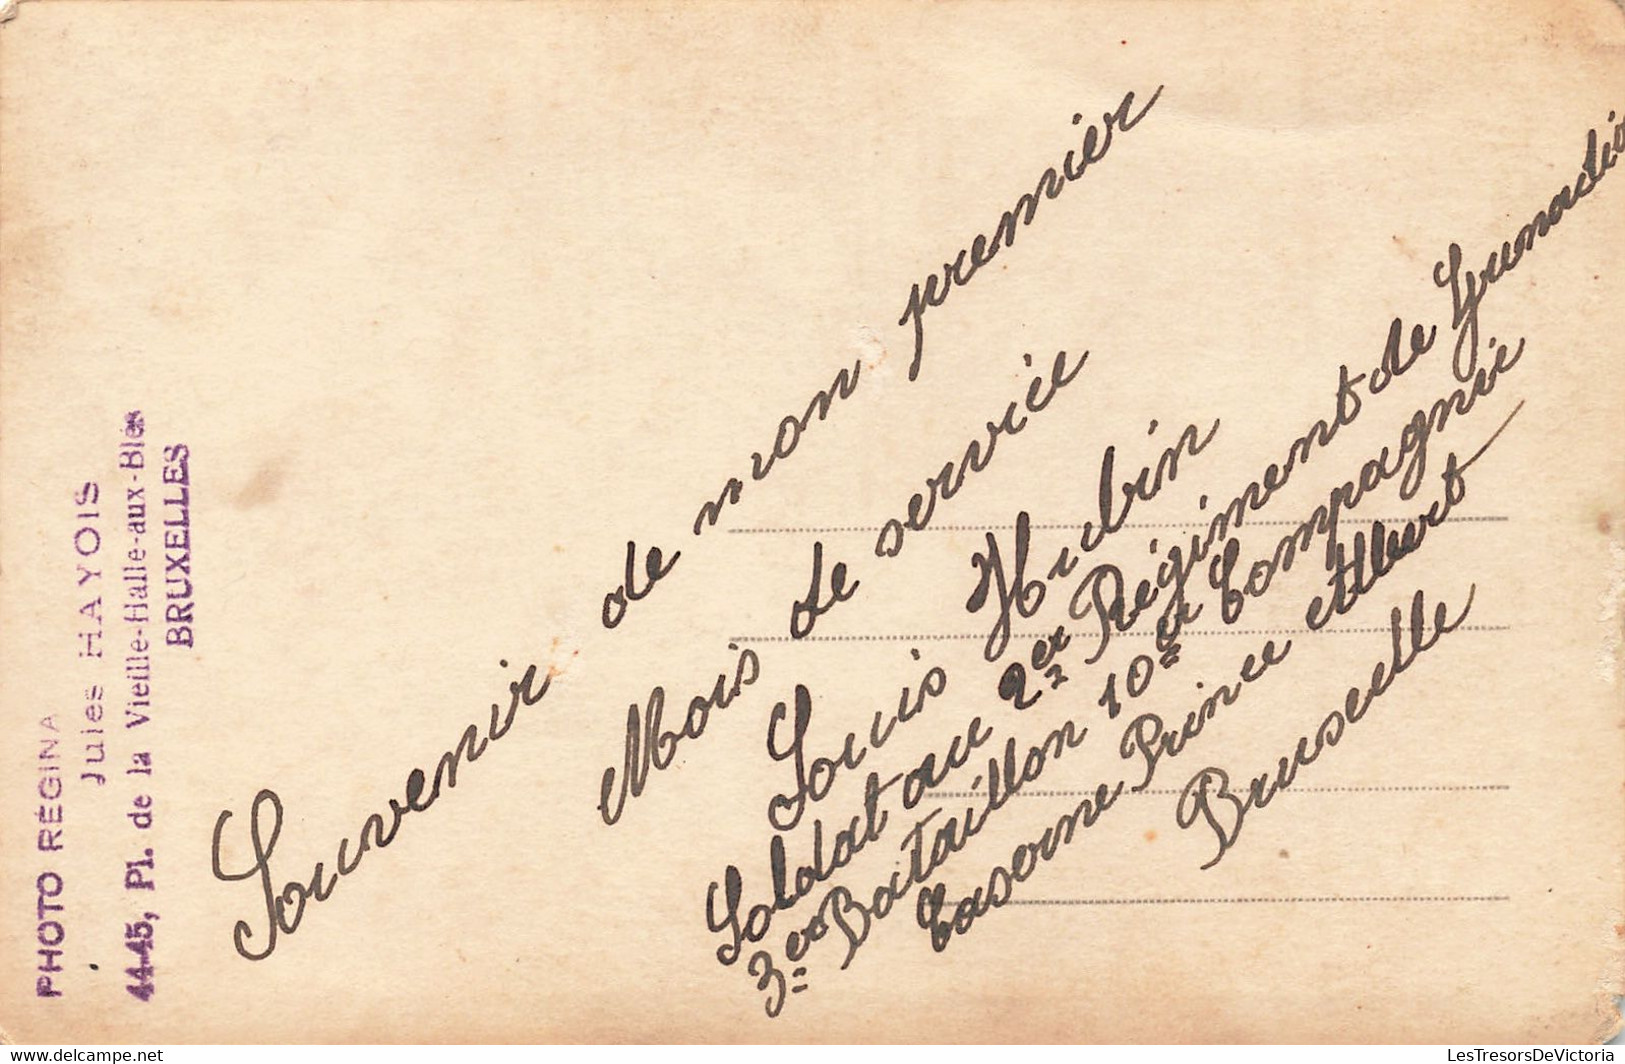 PHOTO RÉGINA
Jules HAYOIS
44-45, Pl. de la Vieille-Halle-aux-Blés
BRUXELLES
Souvenir de mon premier
Mois de service
Louis Hubin
Soldat au 2er Régiment de Grunadie
3er Bataillon 10er Compagnie
Caserne Prince Albert
Bruselle
Delcampe.net
LesTresorsDeVictoria